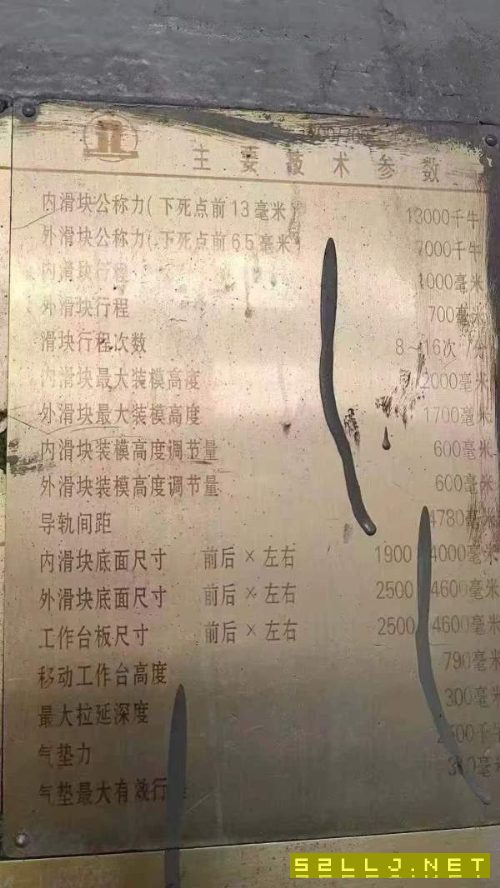 主要技术参数
内滑块公称力(下死点前13毫米) 13000千牛
外滑块公称力(下死点前6.5毫米) 7000千牛
内滑块行程 1000毫米
外滑块行程 700毫米
滑块行程次数 8-16次/分
内滑块最大装模高度 2000毫米
外滑块最大装模高度 1700毫米
内滑块装模高度调节量 600毫米
外滑块装模高度调节量 600毫米
导轨间距 4780毫米
内滑块底面尺寸 前后×左右 1900 4000毫米
外滑块底面尺寸 前后×左右 2500 4600毫米
工作台板尺寸 前后×左右 2500 4600毫米
移动工作台高度 790毫米
最大拉延深度 300毫米
气垫力 千牛
气垫最大有效行 毫米
52LLJ.NET